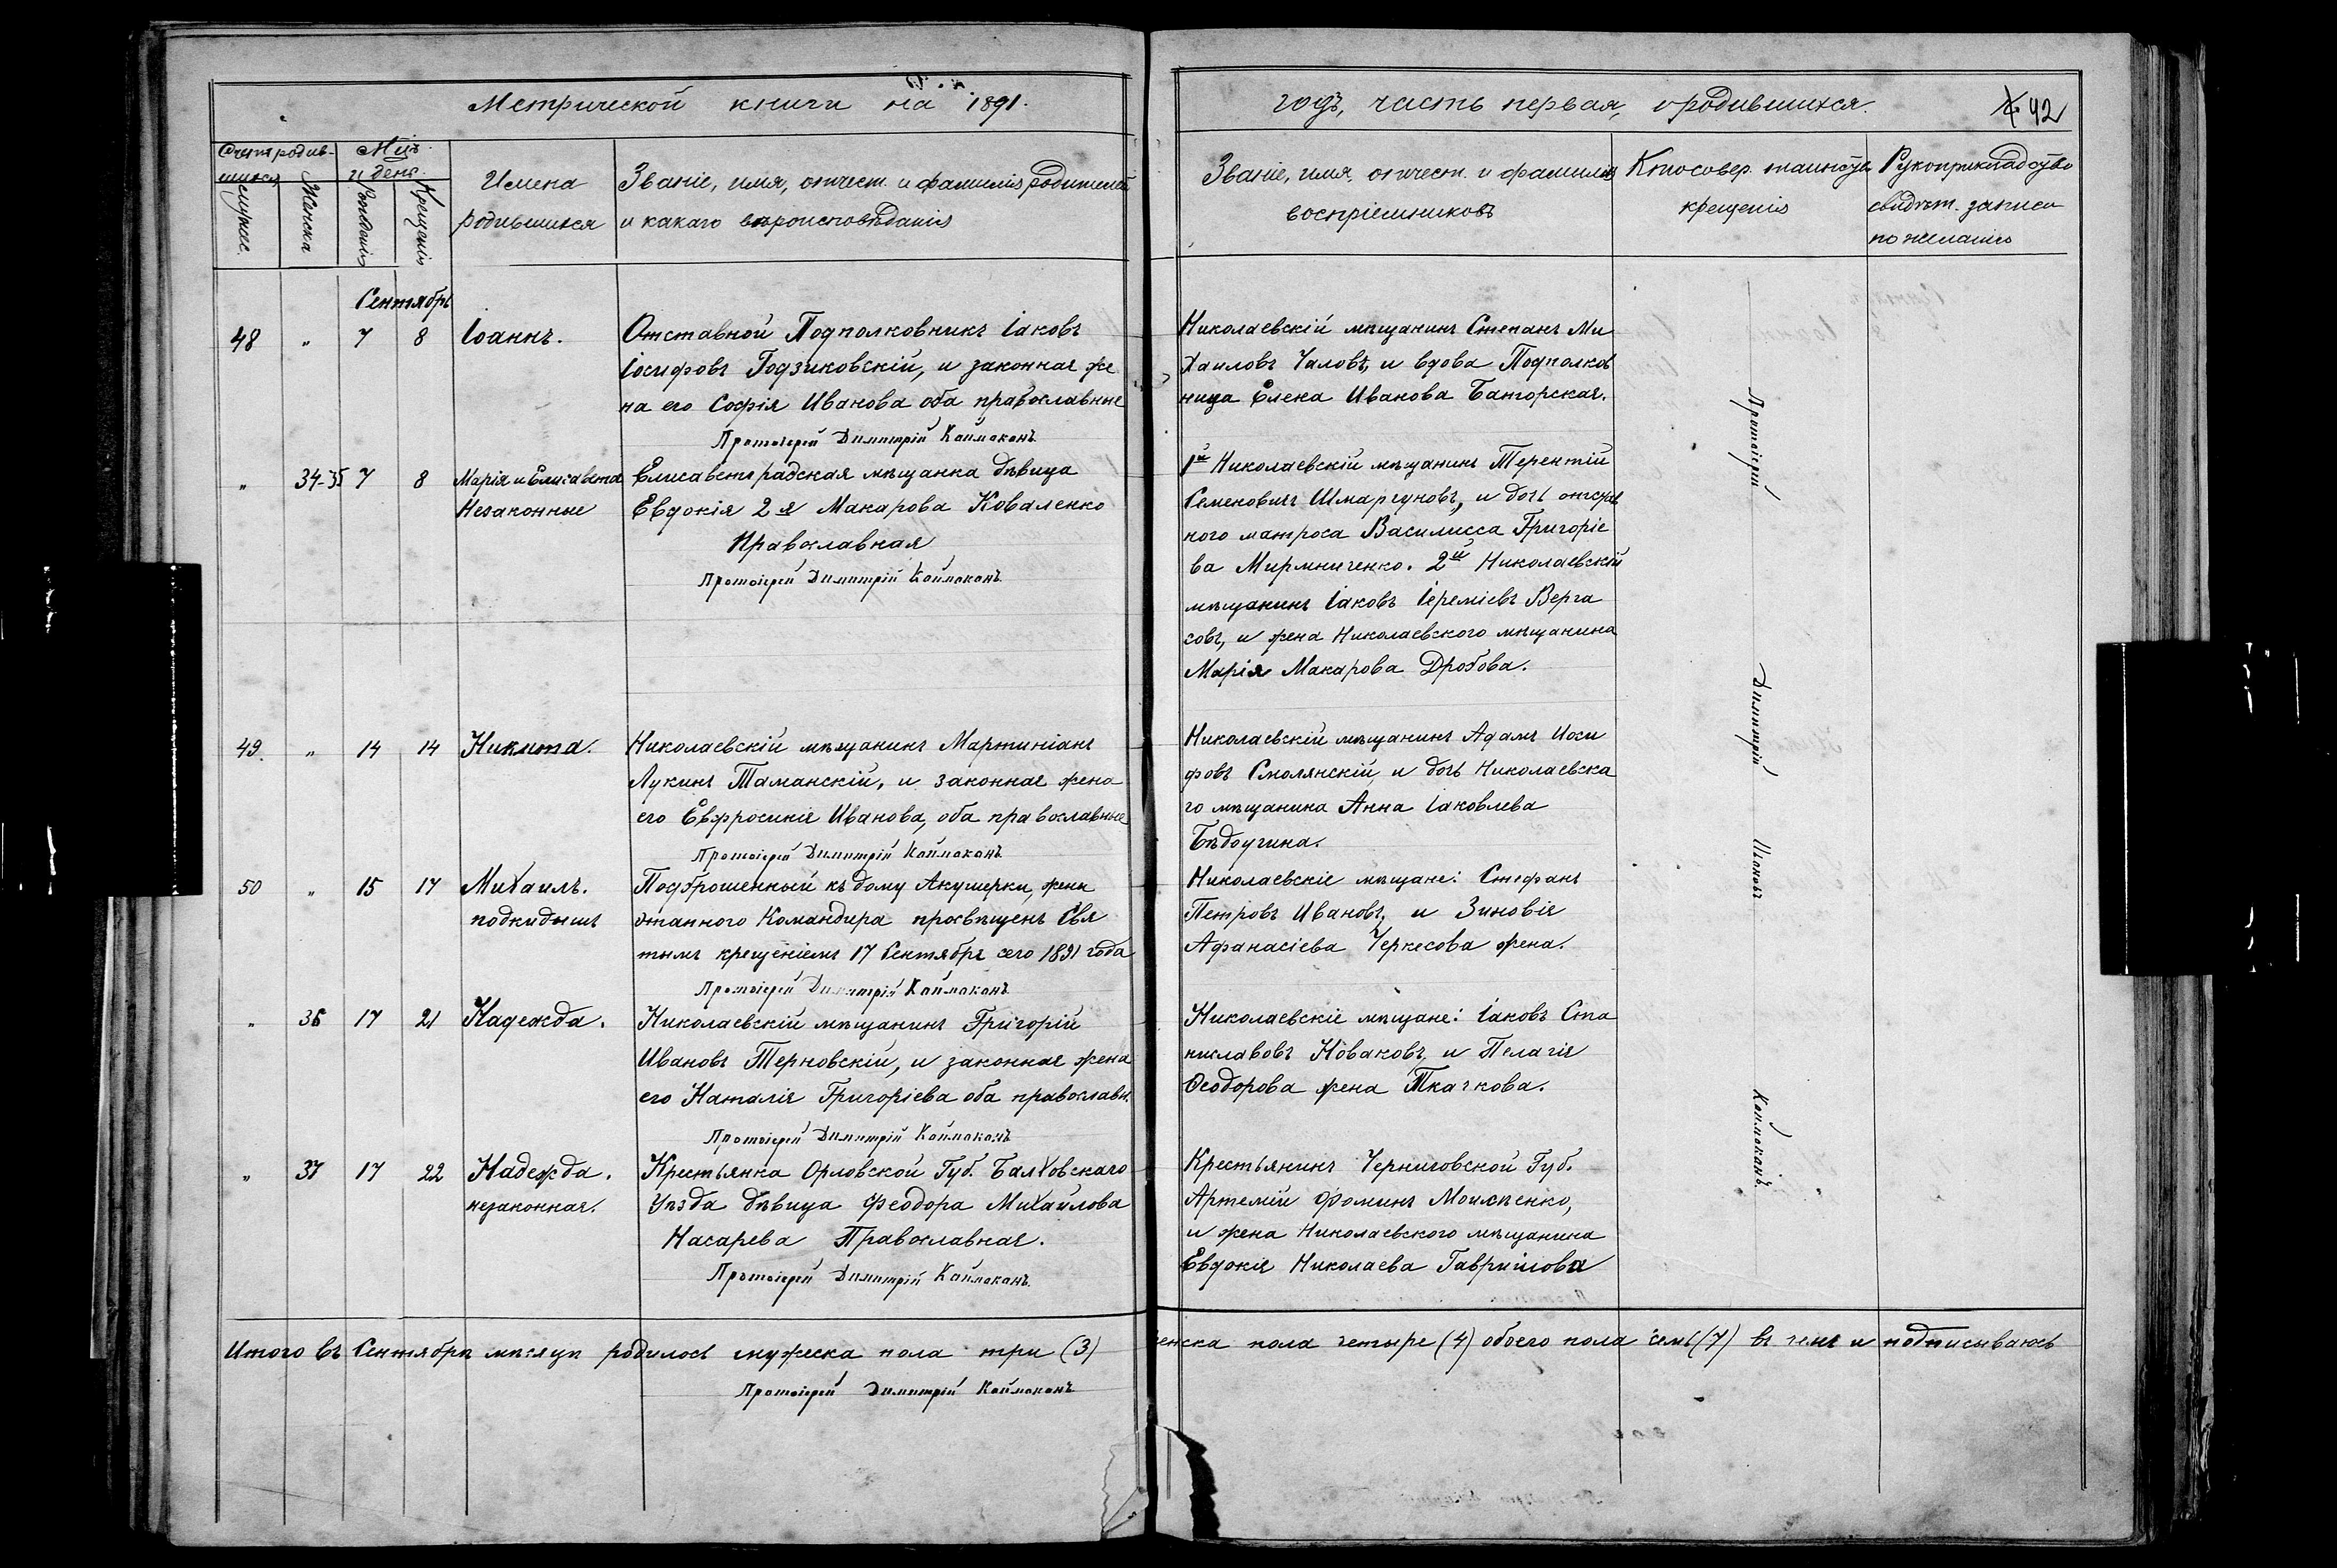 Метрической книги на 1891.
годъ, часть первая, о родившихся.
42
Счетъ родив-
шихся
Мужес.
Женска
Мц̃ъ
и день.
Рожденія
Крещенія
Имена
родившихся
Званіе, имя, отчест. и фамилія родителей,
и какаго вѣроисповѣданія
Званіе, имя, отчест. и фамилія
воспріемниковъ
Кто совер. таинство
крещенія
Рукоприкладство
свидѣт. записи
по желанію
Сентябрь
48 " 7 8 Іоаннъ.
Отставной Подполковникъ Іаковъ
Іосифовъ Годзиковскій, и законная же
на его Софія Иванова оба православные
Протоіерей Димитрій Каймаканъ
Николаевскій мѣщанинъ Степанъ Ми
хаиловъ Чаловъ, и вдова Подполков
ница Елена Иванова Банторская.
" 34-35 7 8 Марія и Елисавета
Незаконные
Елисаветградская мѣщанка дѣвица
Евдокія 2я Макарова Коваленко
Православная
Протоіерей Димитрій Каймаканъ
1й Николаевскій мѣщанинъ Терентій
Семеновичъ Шмаргуновъ, и дочь отстав
ного матроса Василисса Григоріе
ва Мирмниченко. 2й Николаевскій
мѣщанинъ Іаковъ Іереміевъ Верга
совъ, и жена Николаевского мѣщанина
Марія Макарова Дробова.
49. " 14 14 Никита.
Николаевскій мѣщанинъ Мартиніанъ
Лукинъ Таманскій, и законная жена
его Евфросинія Иванова, оба православные
Протоіерей Димитрій Каймаканъ
Николаевскій мѣщанинъ Адамъ Иоси
фовъ Смолянскій и дочь Николаевска
го мѣщанина Анна Іаковлева
Бѣдоугина.
50 " 15 17 Михаилъ.
подкидышъ
Подброшенный къ дому Акушерки, жены
Командира просвѣщенъ Свя
тымъ крещеніемъ 17 Сентября сего 1891 года
Протоіерей Димитрій Каймаканъ
Николаевскіе мѣщане: Стефанъ
Петровъ Ивановъ, и Зиновія
Афанасіева Черкесова жена.
" 36 17 21 Надежда.
Николаевскій мѣщанинъ Григорій
Ивановъ Терновскій, и законная жена
его Наталія Григоріева оба православн.
Протоіерей Димитрій Каймаканъ
Николаевскіе мѣщане: Іаковъ Ста
ниславовъ Новаковъ, и Пелагія
Ѳеодорова жена Ткачкова.
" 37 17 22 Надежда.
незаконная.
Крестьянка Орловской Губ. Балховскаго
Уѣзда дѣвица Феодора Михайлова
Насарева Православная.
Протоіерей Димитрій Каймаканъ
Крестьянинъ Черниговской Губ.
Артемій Фоминъ Моисѣенко,
и жена Николаевского мѣщанина
Евдокія Николаева Гаврилова
Протоіерей Димитрій Каймаканъ
Итого въ Сентябрѣ мѣсяцѣ родилось мужеска пола три (3) женска пола четыре (4) обоего пола семь (7) въ чемъ и подписываюсь
Протоіерей Димитрій Каймаканъ